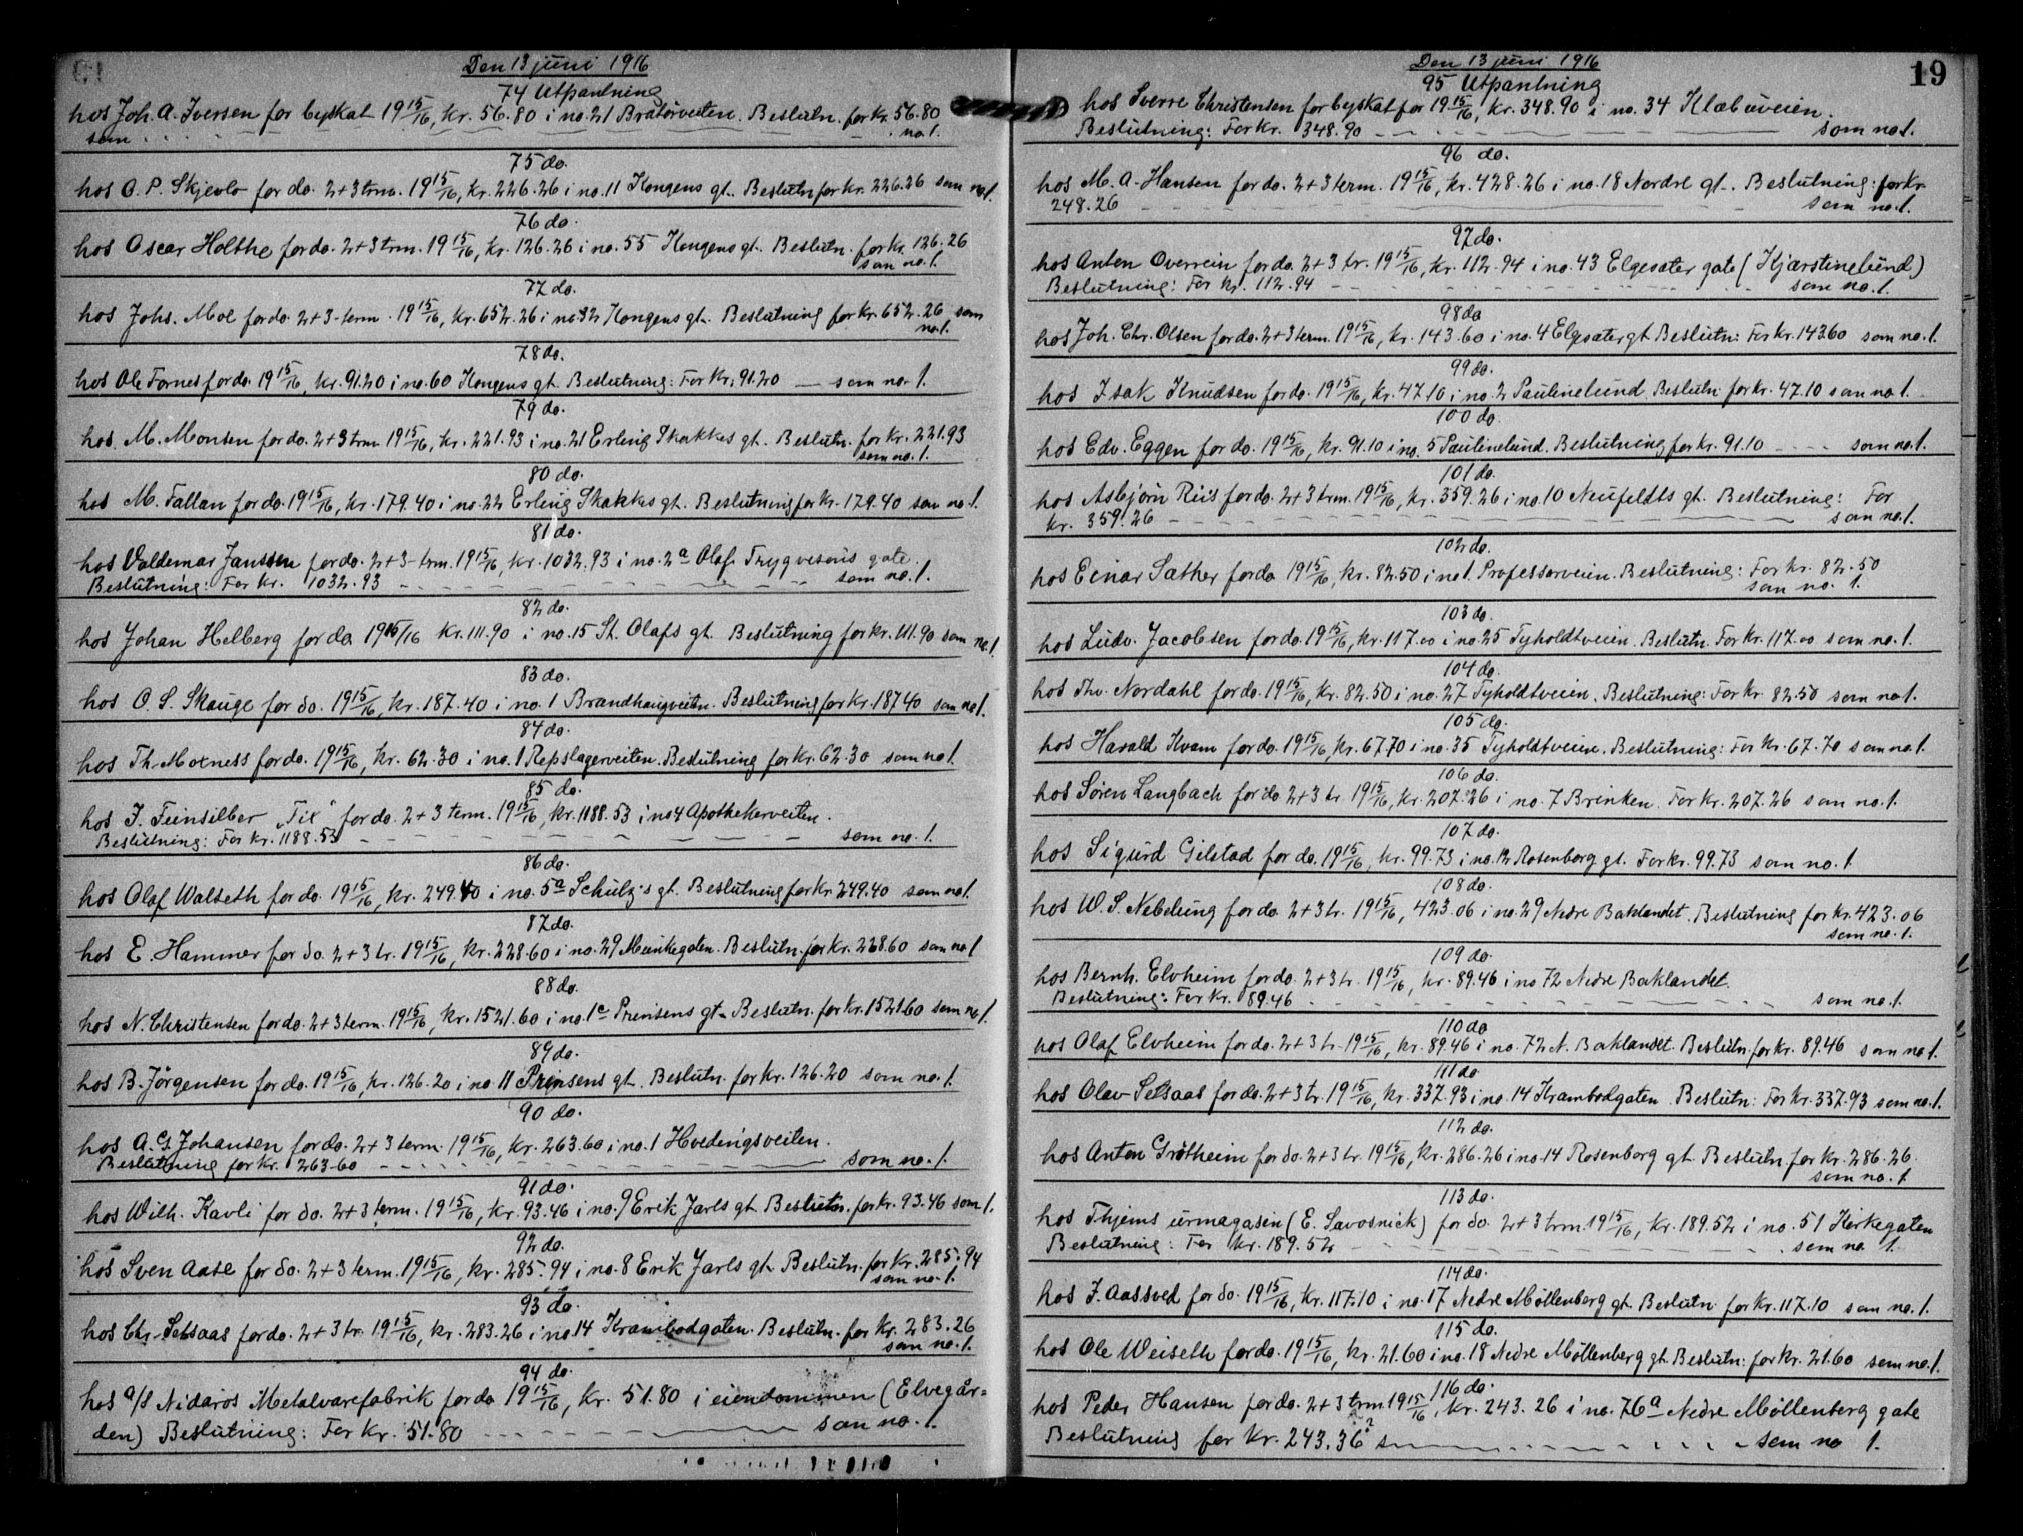 Den 13 juni 1916
74 Utpantning
hos Joh. A. Iversen for byskat 1915/16, kr. 56.80 i no. 21 Bratørveiten. Beslutn. for kr. 56.80
som no. 1.
75 do.
hos O. P. Skjevlo for do. 2+3 trm. 1915/16, kr. 226.26 i no. 11 Kongens gt. Beslutn for kr. 226.26 som no. 1.
76 do.
hos Oscar Holthe for do. 2+3 trm. 1915/16, kr. 126.26 i no. 55 Kongens gt. Beslutn. for kr. 126.26
som no. 1.
77 do.
hos Johs. Moe for do. 2+3 term. 1915/16, kr. 652.26 i no. 32 Kongens gt. Beslutning for kr. 652.26 som
no. 1.
78 do.
hos Ole Fornes for do. 1915/16, kr. 91.20 i no. 60 Kongens gt. Beslutning: For kr. 91.20 — som no. 1.
79 do.
hos M. Monsen for do. 2+3 trm 1915/16, kr. 221.93 i no. 21 Erling Skakkes gt. Beslutn. for kr. 221.93
som no. 1.
80 do.
hos M. Fallan for do. 1915/16, kr. 179.40 i no. 22 Erling Skakkes gt. Beslutning for kr. 179.40 som no 1.
81 do.
hos Valdemar Janssen for do. 2+3 trm. 1915/16, kr. 1032.93 i no. 2a Olaf Trygvesøns gate.
Beslutning: For kr. 1032.93 som no. 1.
82 do.
hos Johan Helberg for do. 1915/16 kr. 111.90 i no. 15 St. Olafs gt. Beslutning for kr. 111.90 som no. 1.
83 do.
hos O. S. Skauge for do. 1915/16, kr. 187.40 i no. 1 Brandhaugveiten. Beslutning for kr. 187.40 som no 1.
84 do.
hos Th. Moxness for do. 1915/16, kr. 62.30 i no. 1 Repslagerveiten. Beslutning for kr. 62.30 som no 1.
85 do.
hos I. Feinsilber "Fix" for do. 2+3 term. 1915/16, kr. 1188.53 i no 4 Apothekerveiten.
Beslutning: For kr. 1188.53 som no. 1.
86 do.
hos Olaf Walseth for do. 1915/16, kr. 249.40 i no. 5a Schulz's gt. Beslutning for kr. 249.40 som no 1.
87 do.
hos E. Hammer for do. 2+3 tr. 1915/16, kr. 228.60 i no. 29 Munkegaten. Beslutn. for kr. 228.60 som no 1
88 do.
hos N. Christensen for do. 2+3 term. 1915/16, kr. 1521.60 i no. 1c Prinsens gt. Beslutn. for kr. 1521.60 som no 1.
89 do.
hos B. Jørgensen for do. 1915/16, kr. 126.20 i no 11 Prinsens gt. Beslutn. for kr. 126.20 som no. 1.
90 do.
hos A. G. Johansen for do. 2+3 term. 1915/16, kr. 263.60 i no. 1 Hvedingsveiten.
Beslutning for kr. 263.60 som no. 1.
91 do.
hos Wilh. Kavli for do. 2+3 term. 1915/16, kr. 93.46 i no. 9 Erik Jarls gt. Beslutn. for kr. 93.46 som 1.
92 do.
hos Sven Aase for do. 2+3 term. 1915/16, kr. 285.94 i no. 8 Erik Jarls gt. Beslutn. for kr. 285.94
som no. 1.
93 do.
hos Chr. Setsaas for do. 2+3 tr. 1915/16, kr. 283.26 i no 14 Krambodgaten. Beslutn. for kr. 283.26
som no. 1.
94 do.
hos a/s Nidaros Metalvarefabrik for do 1915/16, kr. 51.80 i eiendommen (Elvegår=
den) Beslutning: For kr. 51.80 som no. 1.
19
Den 13 juni 1916
95 Utpantning
hos Sverre Christensen for byskat for 1915/16, kr. 348.90 i no. 34 Klæbuveien.
Beslutning: For kr. 348.90 som no 1.
96 do.
hos M. A. Hansen for do. 2+3 term. 1915/16, kr. 428.26 i no. 18 Nordre gt. Beslutning: for kr.
248.26 som no. 1.
97 do.
hos Anton Overrein for do. 2+3 tr. 1915/16, kr. 112.94 i no. 43 Elgesæter gate (Kjærstinelund)
Beslutning: For kr. 112.94 som no. 1.
98 do
hos Joh. Chr. Olsen for do. 2+3 term. 1915/16, kr. 143.60 i no. 4 Elgesæter gt Beslutn: For kr. 143.60 som no. 1.
99 do.
hos Isak Knudsen for do. 1915/16, kr. 47.10 i no. 2 Paulinelund. Beslutn. for kr. 47.10 som no 1.
100 do.
hos Edv. Eggen for do. 1915/16, kr. 91.10 i no. 5 Paulinelund. Beslutning for kr. 91.10 som no 1.
101 do.
hos Asbjørn Riis for do. 2+3 trm. 1915/16, kr. 359.26 i no 10 Neufeldts gt. Beslutning: For
kr. 359.26 som no. 1.
102 do.
hos Einar Sæther for do 1915/16, kr. 82.50 i no 1. Professorveien. Beslutning: For kr. 82.50
som no. 1.
103 do.
hos Ludv. Jacobsen for do. 1915/16, kr. 117.00 i no 25 Tyholdtveien. Beslutn. For kr. 117.00 som no. 1.
104 do.
hos Thv. Nordahl for do. 1915/16, kr. 82.50 i no. 27 Tyholdtveien. Beslutning: For kr. 82.50 som no 1.
105 do.
hos Harald Kvam for do. 1915/16, kr. 67.70 i no. 35 Tyholdtveien. Beslutning: For kr. 67.70 som no 1.
106 do.
hos Søren Langbach for do 2+3 tr. 1915/16, kr. 207.26 i no. 7 Brinken. For kr. 207.26 som no. 1.
107 do.
hos Sigurd Gilstad for do. 1915/16, kr. 99.73 i no. 12 Rosenborg gt. For kr. 99.73 som no. 1.
108 do.
hos W. S. Nebelung for do. 2+3 tr. 1915/16, 423.06 i no. 29 Nedre Baklandet. Beslutning for kr. 423.06
som no. 1.
109 do.
hos Bernh. Elvheim for do. 2+3 tr. 1915/16, kr. 89.46 i no 72 Nedre Baklandet.
Beslutning: For kr. 89.46 som no. 1.
110 do
hos Olaf Elvheim for do. 2+3 tr. 1915/16, kr. 89.46 i no. 72 N. Baklandet. Beslutn for kr. 89.46 som no 1.
111 do
hos Olav Setsaas for do. 2+3 tr. 1915/16, kr. 337.93 i no. 14 Krambodgaten Beslutn: For kr. 337.93 som no. 1.
112 do.
hos Anton Grøtheim for do. 2+3 tr. 1915/16, kr. 286.26 i no. 14 Rosenborg gt Beslutn. for kr. 286.26
som no. 1
113 do.
hos Thjems urmagasin (E. Savosnick) for do. 2+3 trm. 1915/16, kr. 189.52 i no. 51 Kirkegaten
Beslutning: For kr. 189.52 som no 1.
114 do.
hos J. Aassved for do. 1915/16, kr. 117.10 i no. 17 Nedre Møllenberg gt. Beslutn for kr. 117.10 som no. 1.
115 do.
hos Ole Weiseth for do. 1915/16, kr. 21.60 i no. 18 Nedre Møllenberg gt. Beslutn: for kr. 21.60 som no. 1.
116 do.
hos Peder Hansen for do. 2+3 trm. 1915/16, kr. 243.26 i no. 76a Nedre Møllenberg gate
Beslutning for kr. 243.36? som no 1.